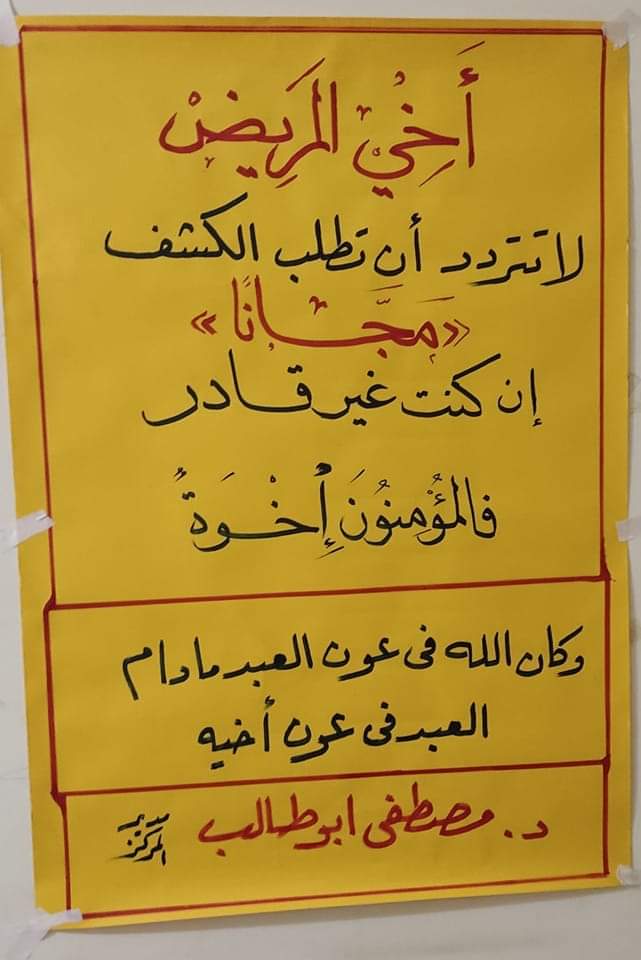 أَخِيْ المَرِيضْ
لا تتردد أن تطلب الكشف
«مَجَّانًا»
إن كنت غير قادر
فالمُؤْمِنُونَ إِخْوَةٌ
وكان الله فى عون العبد مادام
العبد فى عون أخيه
د. مصطفى ابوطالب
مدير
المركز